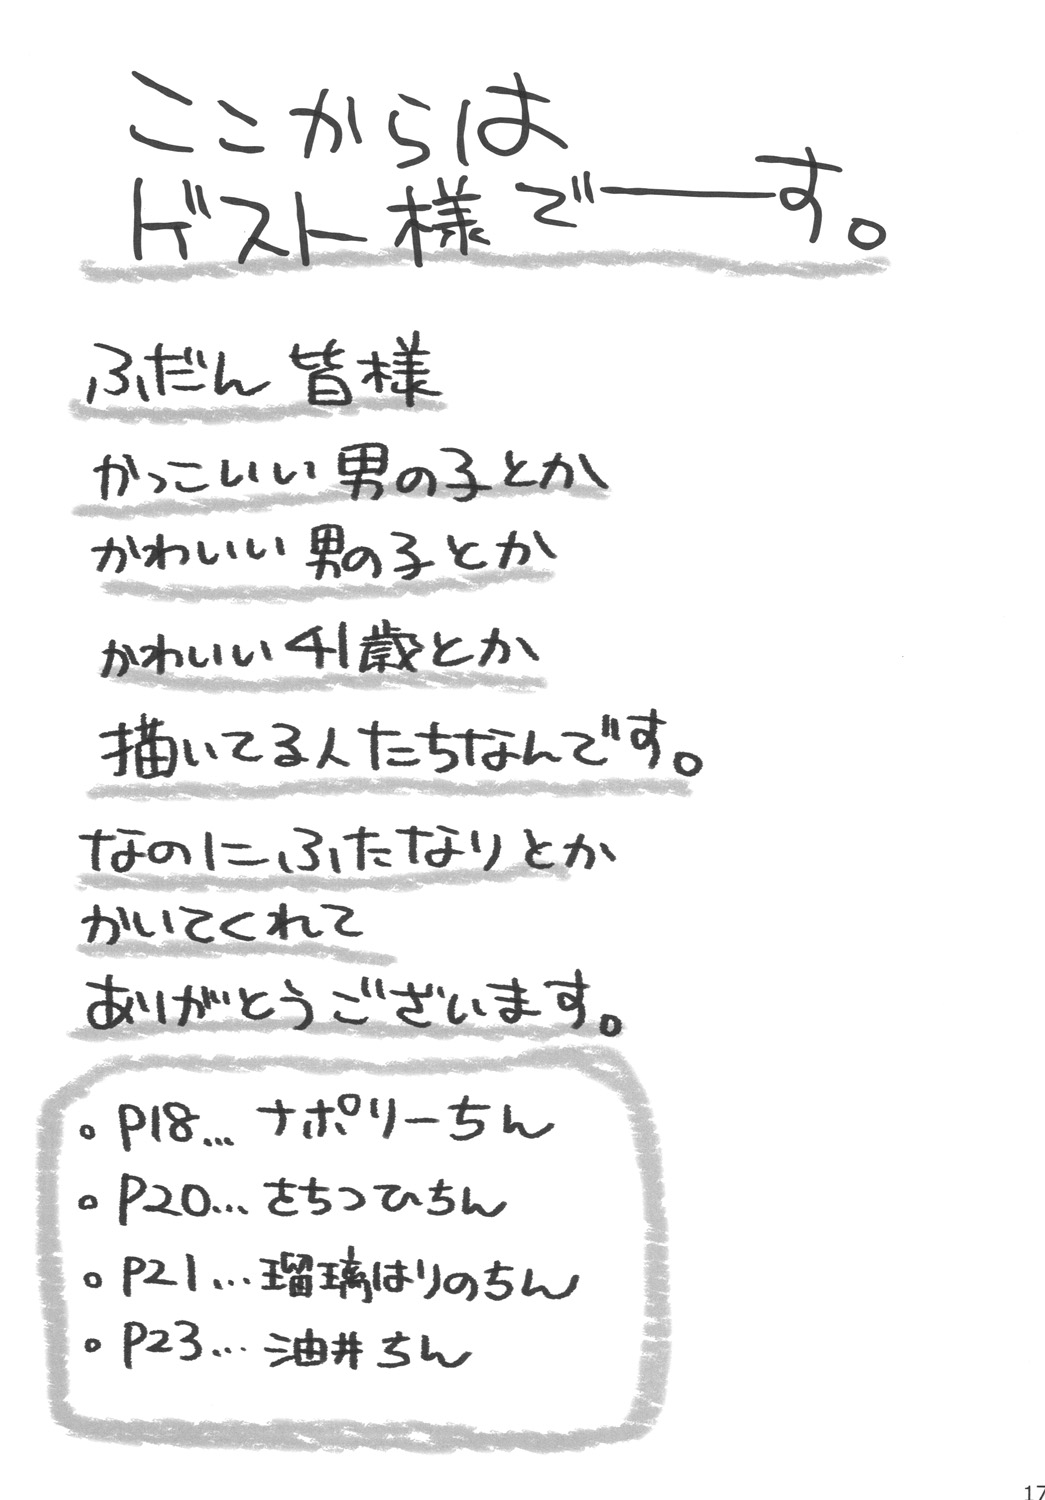 ここからは
ゲスト様でーーーす。
ふだん 皆様
かっこいい男の子とか
かわいい男の子とか
かわいい41歳とか
描いてる人たちなんです。
なのにふたなりとか
かいてくれて
ありがとうございます。
。P18... ナポリーちん
。P20... さちつひちん
。P21... 瑠璃はりのちん
。P23... 油井ちん
17